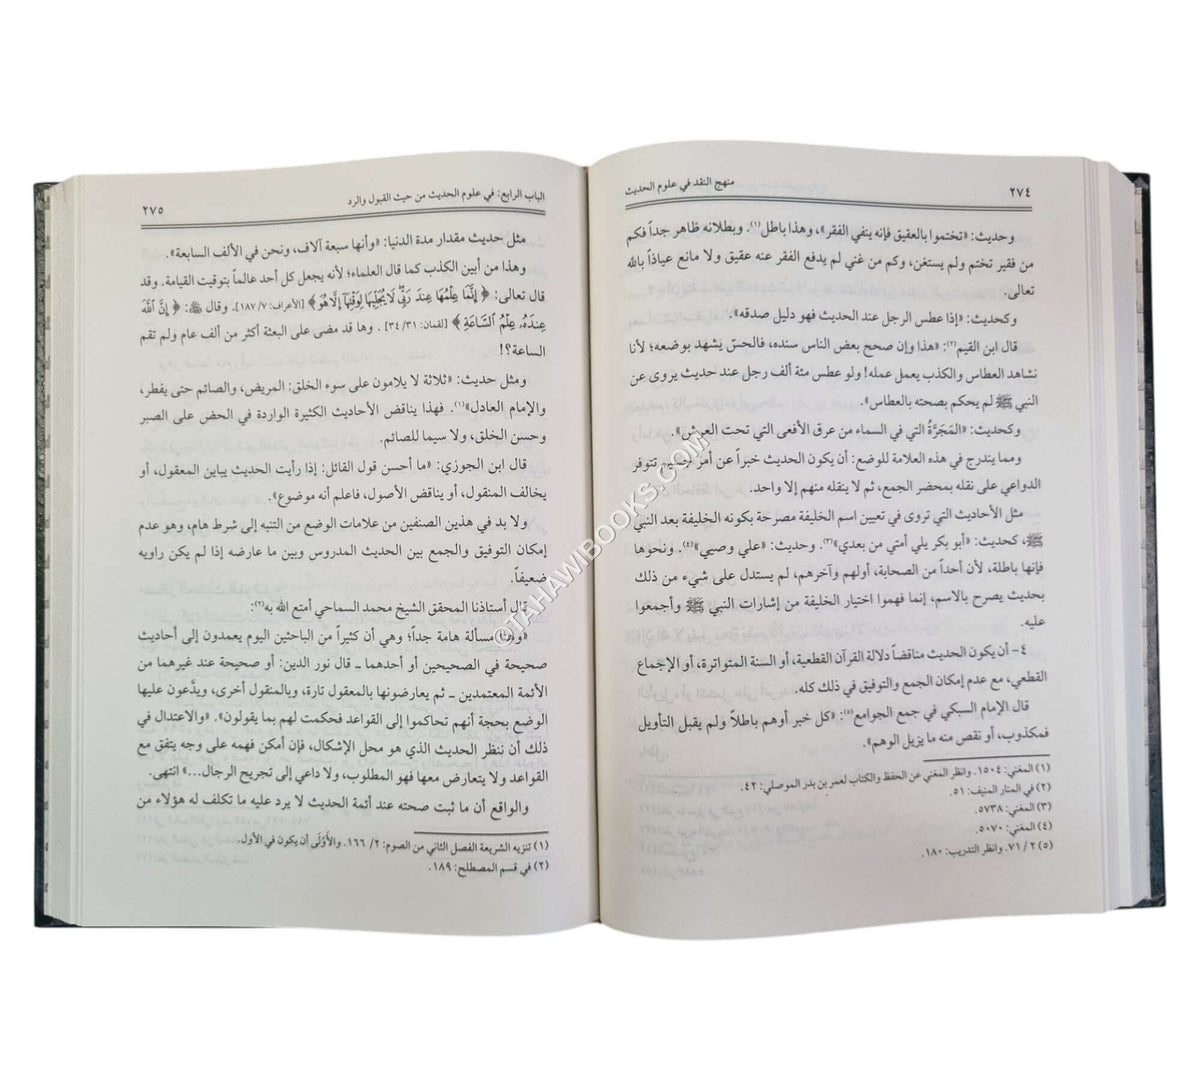 ٢٧٤
منهج النقد في علوم الحديث
وحديث: «تختموا بالعقيق فإنه ينفي الفقر»، وهذا باطل(١). وبطلانه ظاهر جداً فكم
من فقير تختم ولم يستغن، وكم من غني لم يدفع الفقر عنه عقيق ولا مانع عياذاً بالله
تعالى.
وكحديث: «إذا عطس الرجل عند الحديث فهو دليل صدقه».
قال ابن القيم(٢): «هذا وإن صحح بعض الناس سنده، فالحسّ يشهد بوضعه؛ لأنا
نشاهد العطاس والكذب يعمل عمله! ولو عطس مئة ألف رجل عند حديث يروى عن
النبي ﷺ لم يحكم بصحته بالعطاس».
وكحديث: «المَجَرَّةُ التي في السماء من عرق الأفعى التي تحت العرش».
ومما يندرج في هذه العلامة للوضع: أن يكون الحديث خبراً عن أمر جسيم تتوفر
الدواعي على نقله بمحضر الجمع، ثم لا ينقله منهم إلا واحد.
مثل الأحاديث التي تروى في تعيين اسم الخليفة مصرحة بكونه الخليفة بعد النبي
ﷺ، كحديث: «أبو بكر يلي أمتي من بعدي»(٣). وحديث: «علي وصيي»(٤). ونحوها
فإنها باطلة، لأن أحداً من الصحابة، أولهم وآخرهم، لم يستدل على شيء من ذلك
بحديث يصرح بالاسم، إنما فهموا اختيار الخليفة من إشارات النبي ﷺ وأجمعوا
عليه.
٤- أن يكون الحديث مناقضاً دلالة القرآن القطعية، أو السنة المتواترة، أو الإجماع
القطعي، مع عدم إمكان الجمع والتوفيق في ذلك كله.
قال الإمام السبكي في جمع الجوامع(٥): «كل خبر أوهم باطلاً ولم يقبل التأويل
فمكذوب، أو نقص منه ما يزيل الوهم».
(١) المغني: ١٥٠٤. وانظر المغني عن الحفظ والكتاب لعمر بن بدر الموصلي: ٤٢.
(٢) في المنار المنيف: ٥١.
(٣) المغني: ٥٧٣٨.
(٤) المغني: ٥٠٧٠.
(٥) ٢/ ٧١. وانظر التدريب: ١٨٠.
الباب الرابع: في علوم الحديث من حيث القبول والرد
٢٧٥
مثل حديث مقدار مدة الدنيا: «وأنها سبعة آلاف، ونحن في الألف السابعة».
وهذا من أبين الكذب كما قال العلماء؛ لأنه يجعل كل أحد عالماً بتوقيت القيامة. وقد
قال تعالى: ﴿إِنَّمَا عِلْمُهَا عِندَ رَبِّي لَا يُجَلِّيهَا لِوَقْتِهَا إِلَّا هُوَ﴾ [الأعراف: ٧/ ١٨٧]. وقال ﷻ: ﴿إِنَّ اللَّهَ
عِندَهُ عِلْمُ السَّاعَةِ﴾ [لقمان: ٣١/ ٣٤]. وها قد مضى على البعثة أكثر من ألف عام ولم تقم
الساعة؟!
ومثل حديث: «ثلاثة لا يلامون على سوء الخلق: المريض، والصائم حتى يفطر،
والإمام العادل»(١). فهذا يناقض الأحاديث الكثيرة الواردة في الحض على الصبر
وحسن الخلق، ولا سيما للصائم.
قال ابن الجوزي: «ما أحسن قول القائل: إذا رأيت الحديث يباين المعقول، أو
يخالف المنقول، أو يناقض الأصول، فاعلم أنه موضوع».
ولا بد في هذين الصنفين من علامات الوضع من التنبه إلى شرط هام، وهو عدم
إمكان التوفيق والجمع بين الحديث المدروس وبين ما عارضه إذا لم يكن راويه
ضعيفاً.
قال أستاذنا المحقق الشيخ محمد السماحي أمتع الله به(٢):
«وهنا مسألة هامة جداً؛ وهي أن كثيراً من الباحثين اليوم يعمدون إلى أحاديث
صحيحة في الصحيحين أو أحدهما ـ قال نور الدين: أو صحيحة عند غيرهما من
الأئمة المعتمدين ـ ثم يعارضونها بالمعقول تارة، وبالمنقول أخرى، ويدَّعون عليها
الوضع بحجة أنهم تحاكموا إلى القواعد فحكمت لهم بما يقولون». «والاعتدال في
ذلك أن ننظر الحديث الذي هو محل الإشكال، فإن أمكن فهمه على وجه يتفق مع
القواعد ولا يتعارض معها فهو المطلوب، ولا داعي إلى تجريح الرجال...» انتهى.
والواقع أن ما ثبت صحته عند أئمة الحديث لا يرد عليه ما تكلف له هؤلاء من
(١) تنزيه الشريعة الفصل الثاني من الصوم: ٢/ ١٦٦. والأَوْلَى أن يكون في الأول.
(٢) في قسم المصطلح: ١٨٩.
©TAHAWIBOOKS.COM